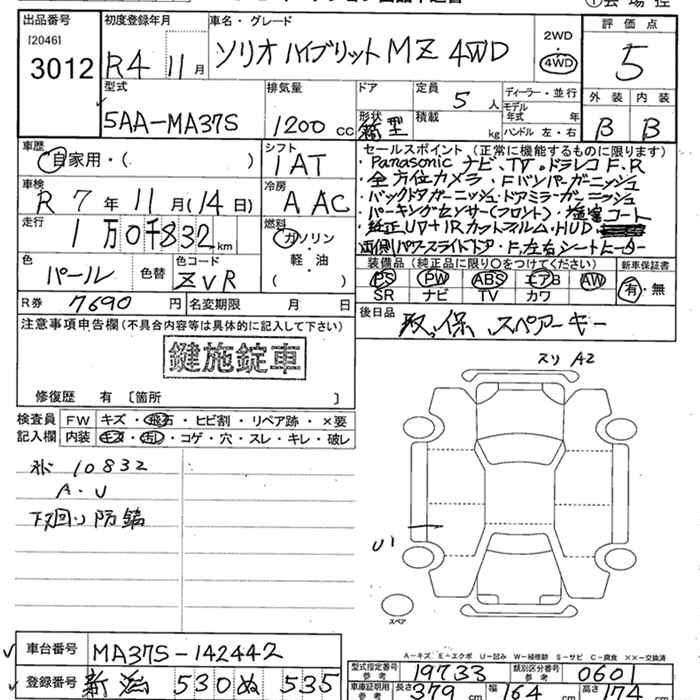 出品番号 初度登録年月 車名・グレード 評価点
[2046] 3012 R4 11月 ソリオ ハイブリット MZ 4WD 2WD 4WD 5
型式 排気量 ドア 定員 ディーラー・並行 外装 内装
5AA-MA37S 1200 cc 5人 モデル年式 年
形状 箱型 積載 kg ハンドル 左・右 B B
車歴 自家用・( ) シフト IAT セールスポイント (正常に機能するものに限ります)
・Panasonic ナビ、TV。ドラレコ F、R
車検 R 7年 11月 (14日) 冷房 A AC ・全方位カメラ・Fバンパーガーニッシュ
・バックドアガーニッシュ・ドアミラーガーニッシュ
・パーキングセンサー(フロント)・
走行 1万0千832km 燃料 ガソリン ・純正UV+IRカットフィルム・HUD
軽・油 ( ) 両側パワースライドドア・F、左右シートヒーター
色 パール 色替 色コード ZVR 装備品 (純正品に限り○をつけてください) 新車保証書
PS PW ABS エアB AW 有・無
SR ナビ TV カワ
R券 7690円 名変期限 月 日 後日品 取、保、スペアーキー
注意事項申告欄 (不具合内容等は具体的に記入して下さい)
鍵施錠車
修復歴 有 [箇所 ]
スリ A2
検査員記入欄 FW キズ・飛石・ヒビ割・リペア跡・×要
内装 キズ・汚レ・コゲ・穴・スレ・キレ・破レ
10832
A・U
下廻り防錆
U1
スペア
A-キズ E-エクボ U-凹み W-補修跡 S-サビ C-腐食 ××-交換済
車台番号 MA37S-142442 型式指定番号 参考 19733 類別区分番号 参考 0601
登録番号 新潟 530 ぬ 535 車庫証明用 参考 長さ 379 cm 幅 164 cm 高さ 174 cm